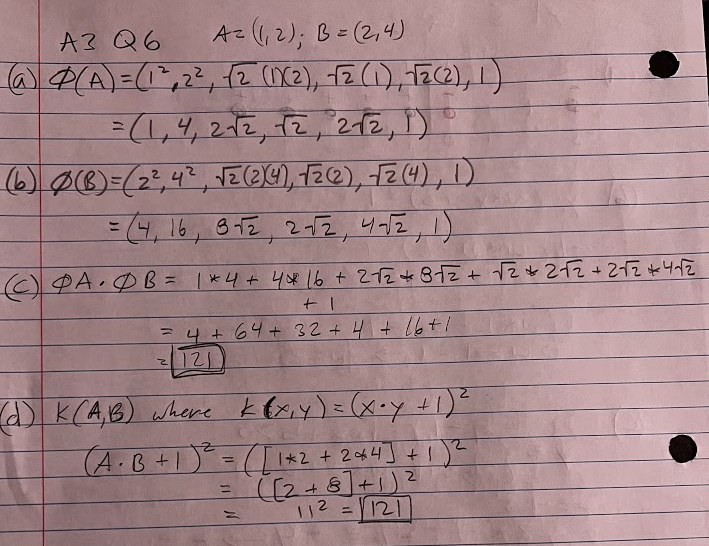 A3 Q6 A=(1,2); B=(2,4)
(a) Φ(A)=(1², 2², √2 (1)(2), √2 (1), √2(2), 1)
=(1, 4, 2√2, √2, 2√2, 1)
(b) Φ(B)=(2², 4², √2(2)(4), √2(2), √2(4), 1)
=(4, 16, 8√2, 2√2, 4√2, 1)
(c) ΦA · ΦB = 1*4 + 4*16 + 2√2 * 8√2 + √2 * 2√2 + 2√2 * 4√2
+ 1
= 4 + 64 + 32 + 4 + 16 + 1
= 121
(d) K(A,B) where k(x,y) = (x·y +1)²
(A·B+1)² = ([1*2 + 2*4] + 1)²
= ([2 + 8] + 1)²
= 11² = 121